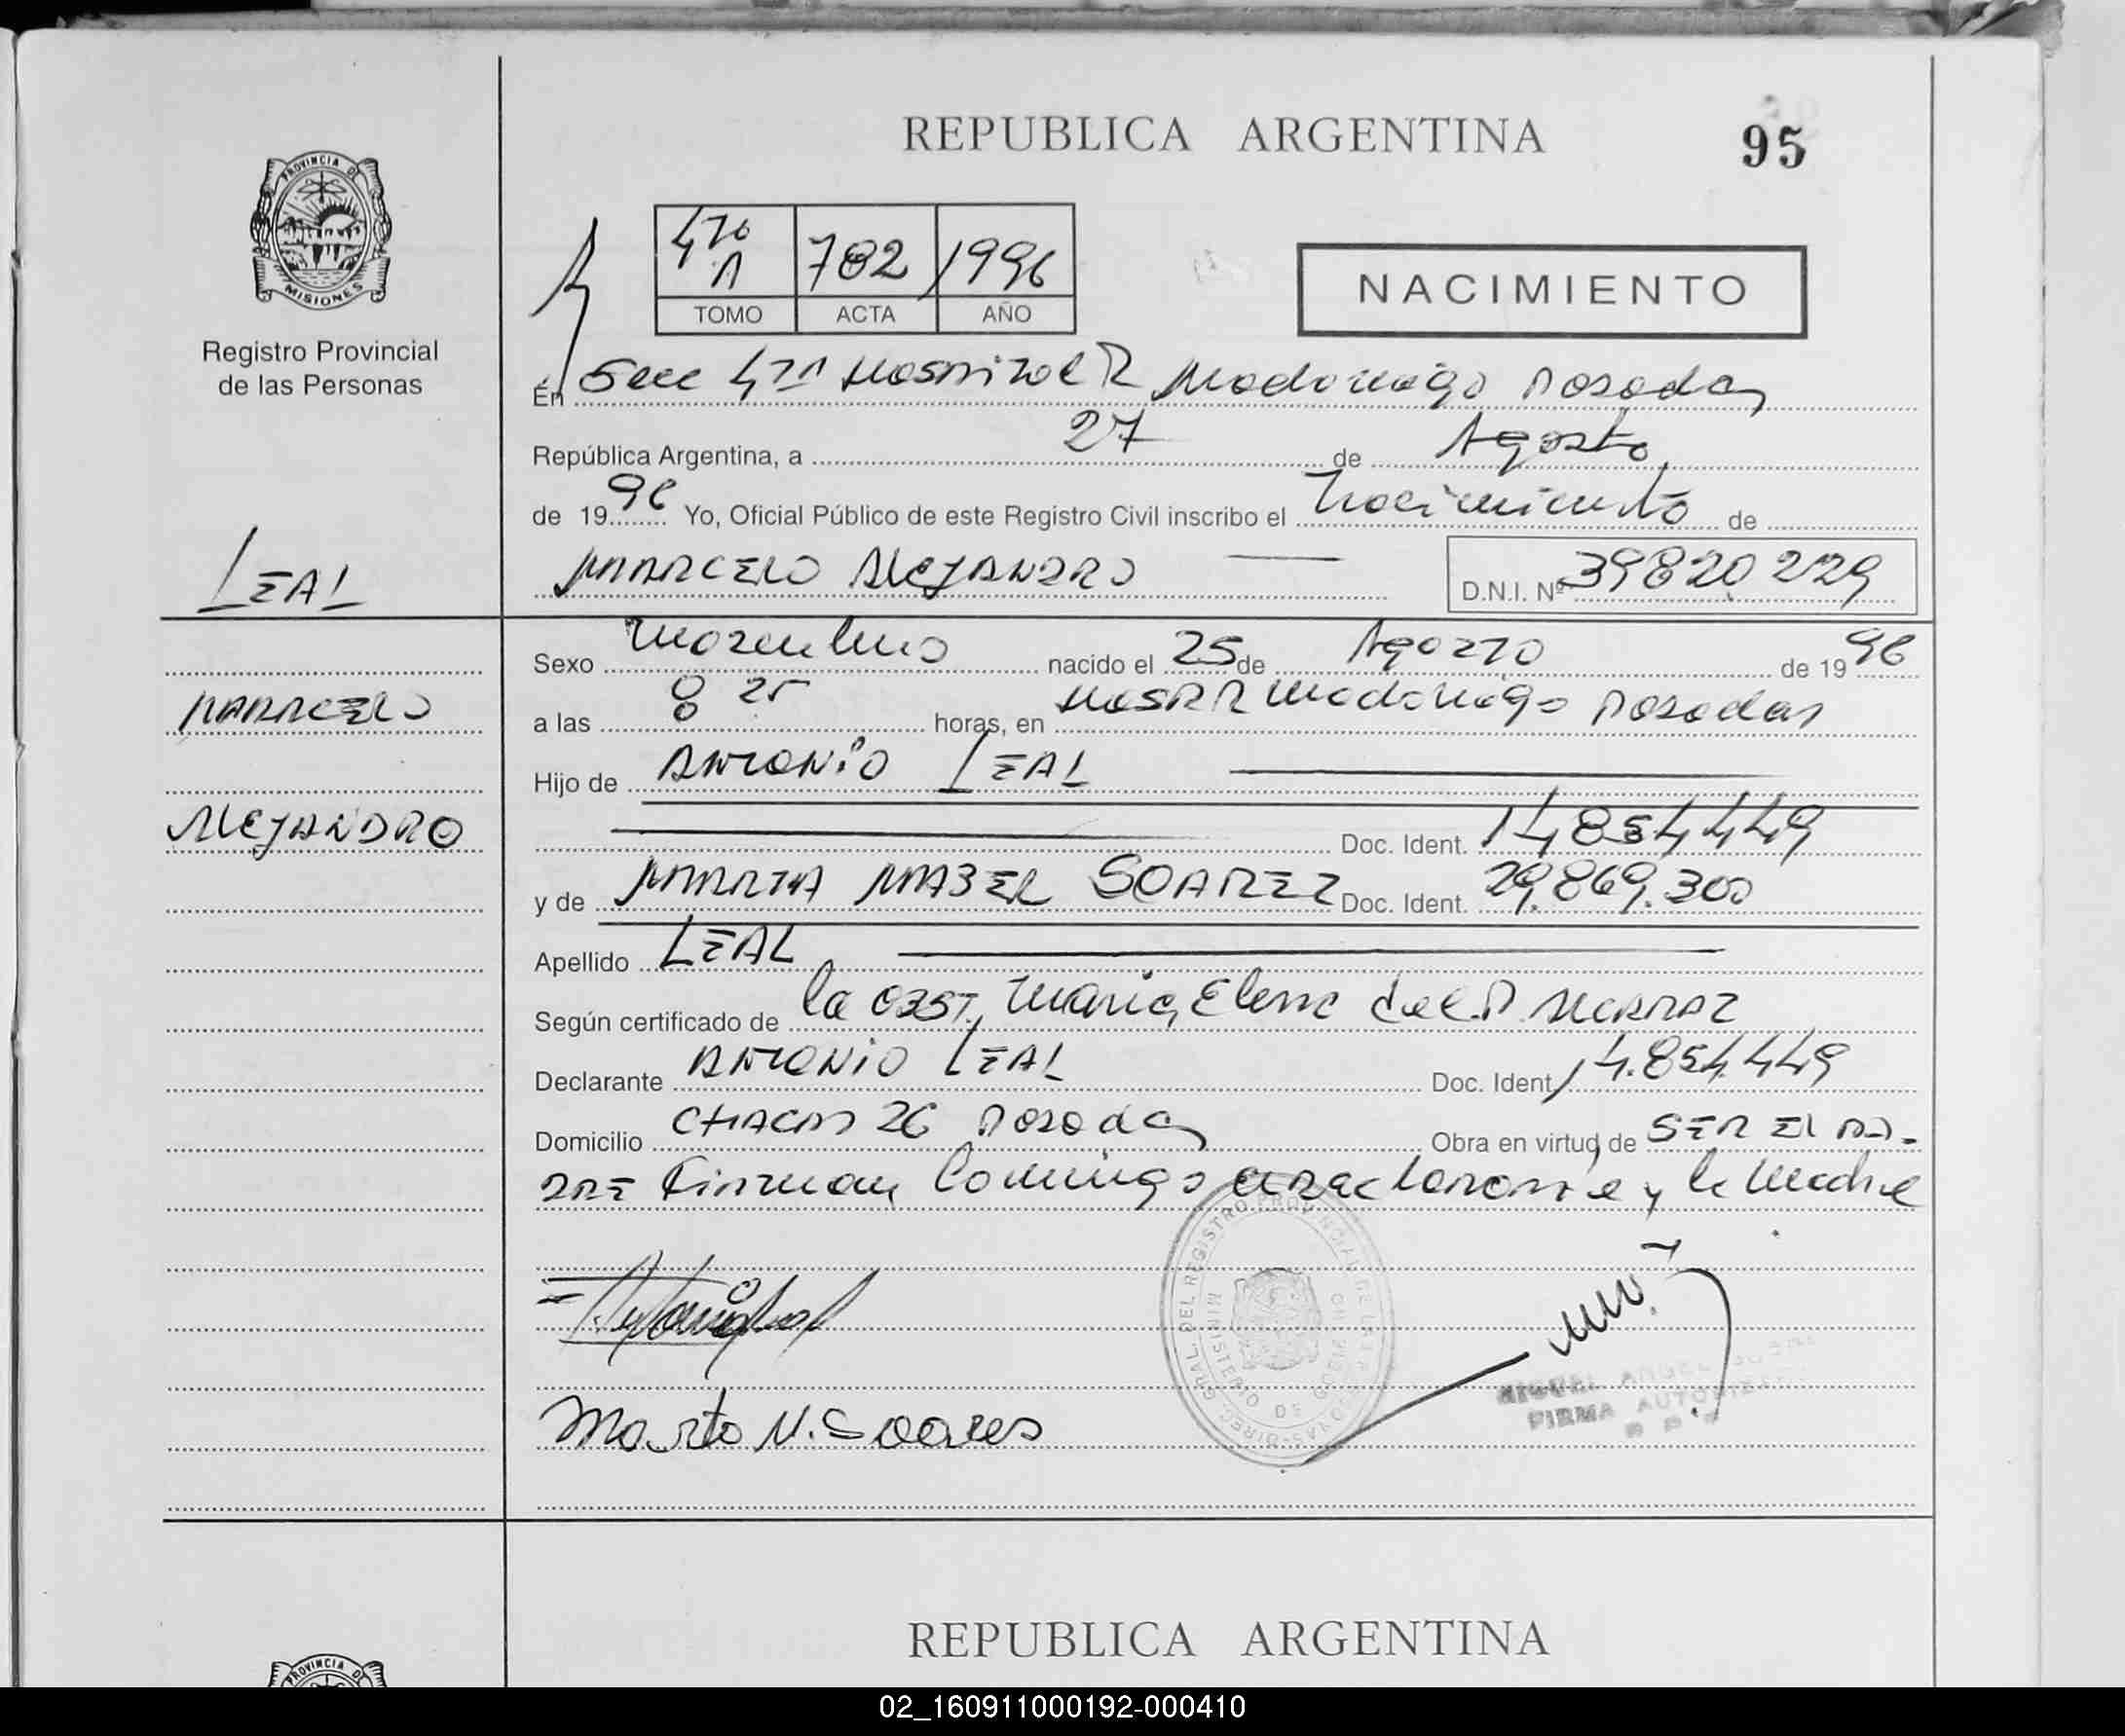 REPUBLICA ARGENTINA
95
PROVINCIA DE
MISIONES
Registro Provincial
de las Personas
4to A 782 1996
TOMO ACTA AÑO
NACIMIENTO
En Secc 4ta Hospital R Madariaga Posadas
República Argentina, a 27 de Agosto
de 1996 Yo, Oficial Público de este Registro Civil inscribo el Nacimiento de
LEAL
MARCELO ALEJANDRO
D.N.I. Nº 39820229
Sexo Masculino nacido el 25 de Agosto de 1996
MARCELO
a las 8 25 horas, en Hosp R Madariaga Posadas
Hijo de ANTONIO LEAL
ALEJANDRO
Doc. Ident. 14854449
y de MARTA MABEL SOAREZ Doc. Ident. 29.869.300
Apellido LEAL
Según certificado de la OBST. Maria Elena del P.
Declarante ANTONIO LEAL Doc. Ident. 14.854.449
Domicilio CHACRA 26 Posadas Obra en virtud de SER EL PA-
DRE Firman Conmigo el declarante y la Madre
Marta M. Soares
MIGUEL ANGEL
FIRMA AUTORIZADA
REPUBLICA ARGENTINA
PROVINCIA DE
02_160911000192-000410